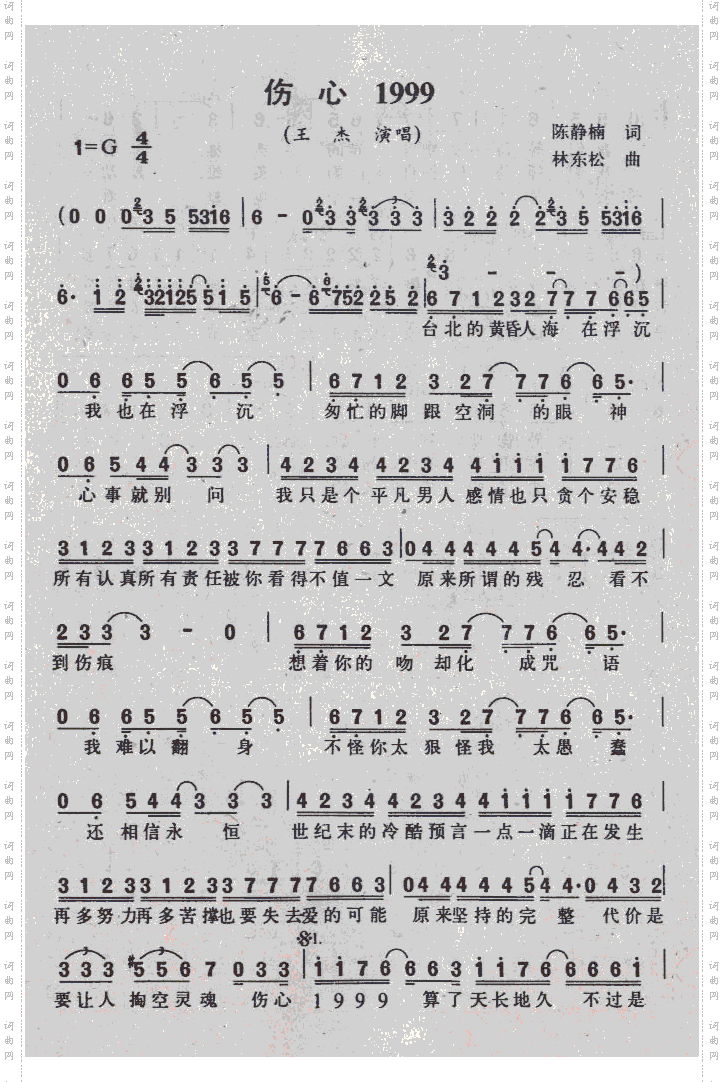 伤 心 1999
(王 杰 演唱)
陈静楠 词
林东松 曲
1=G 4/4
(0 0 0 3 5 5316 | 6 - 0 3 3 3 3 3 | 3 2 2 2 2 3 5 5316 |
6· 1 2 32125 5 1 5 | 6 - 6 752 2 5 2 | 3 - - -)
6 7 1 2 3 2 7 7 7 6 6 5 |
台北的黄昏人海 在浮 沉
0 6 6 5 5 6 5 5 | 6 7 1 2 3 2 7 7 7 6 6 5· |
我 也在 浮 沉 匆忙的脚 跟 空洞 的眼 神
0 6 5 4 4 3 3 3 | 4 2 3 4 4 2 3 4 4 1 1 1 1 7 7 6 |
心事就别 问 我只是个 平凡男人 感情也只贪个安稳
3 1 2 3 3 1 2 3 3 7 7 7 7 6 6 3 | 0 4 4 4 4 4 5 4 4· 4 4 2 |
所有认真所有责任被你看得不值一文 原来所谓的残 忍 看不
2 3 3 3 - 0 | 6 7 1 2 3 2 7 7 7 6 6 5· |
到伤痕 想着你的 吻 却化 成咒 语
0 6 6 5 5 6 5 5 | 6 7 1 2 3 2 7 7 7 6 6 5· |
我 难以 翻 身 不怪你太 狠 怪我 太愚 蠢
0 6 5 4 4 3 3 3 | 4 2 3 4 4 2 3 4 4 1 1 1 1 7 7 6 |
还 相信永 恒 世纪末的冷酷预言一点一滴正在发生
3 1 2 3 3 1 2 3 3 7 7 7 7 6 6 3 | 0 4 4 4 4 4 5 4 4· 0 4 3 2 |
再多努力再多苦撑也要失去爱的可能 原来坚持的完 整 代价是
3 3 3 #5 5 6 7 0 3 3 | 1 1 7 6 6 6 3 1 1 7 6 6 6 6 1 |
要让人 掏空灵魂 伤心 1999 算了天长地久 不过是
词曲网